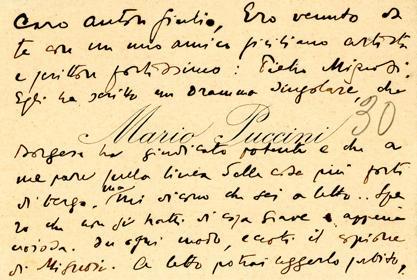 Caro Anton Giulio, Ero venuto da
te con un mio amico siciliano artista
e scrittore fortissimo: Pietro Mignosi.
Egli ha scritto un dramma singolare, che
Mario Puccini
30
Borgese ha giudicato potente e che a
me pare sulla linea delle cose più forti
di Verga. Ma mi dicono che sei a letto.. Spe
ro che non si tratti di cosa grave e appena
noiosa. In ogni modo, eccoti il copione
di Mignosi. A letto potrai leggerlo subito,